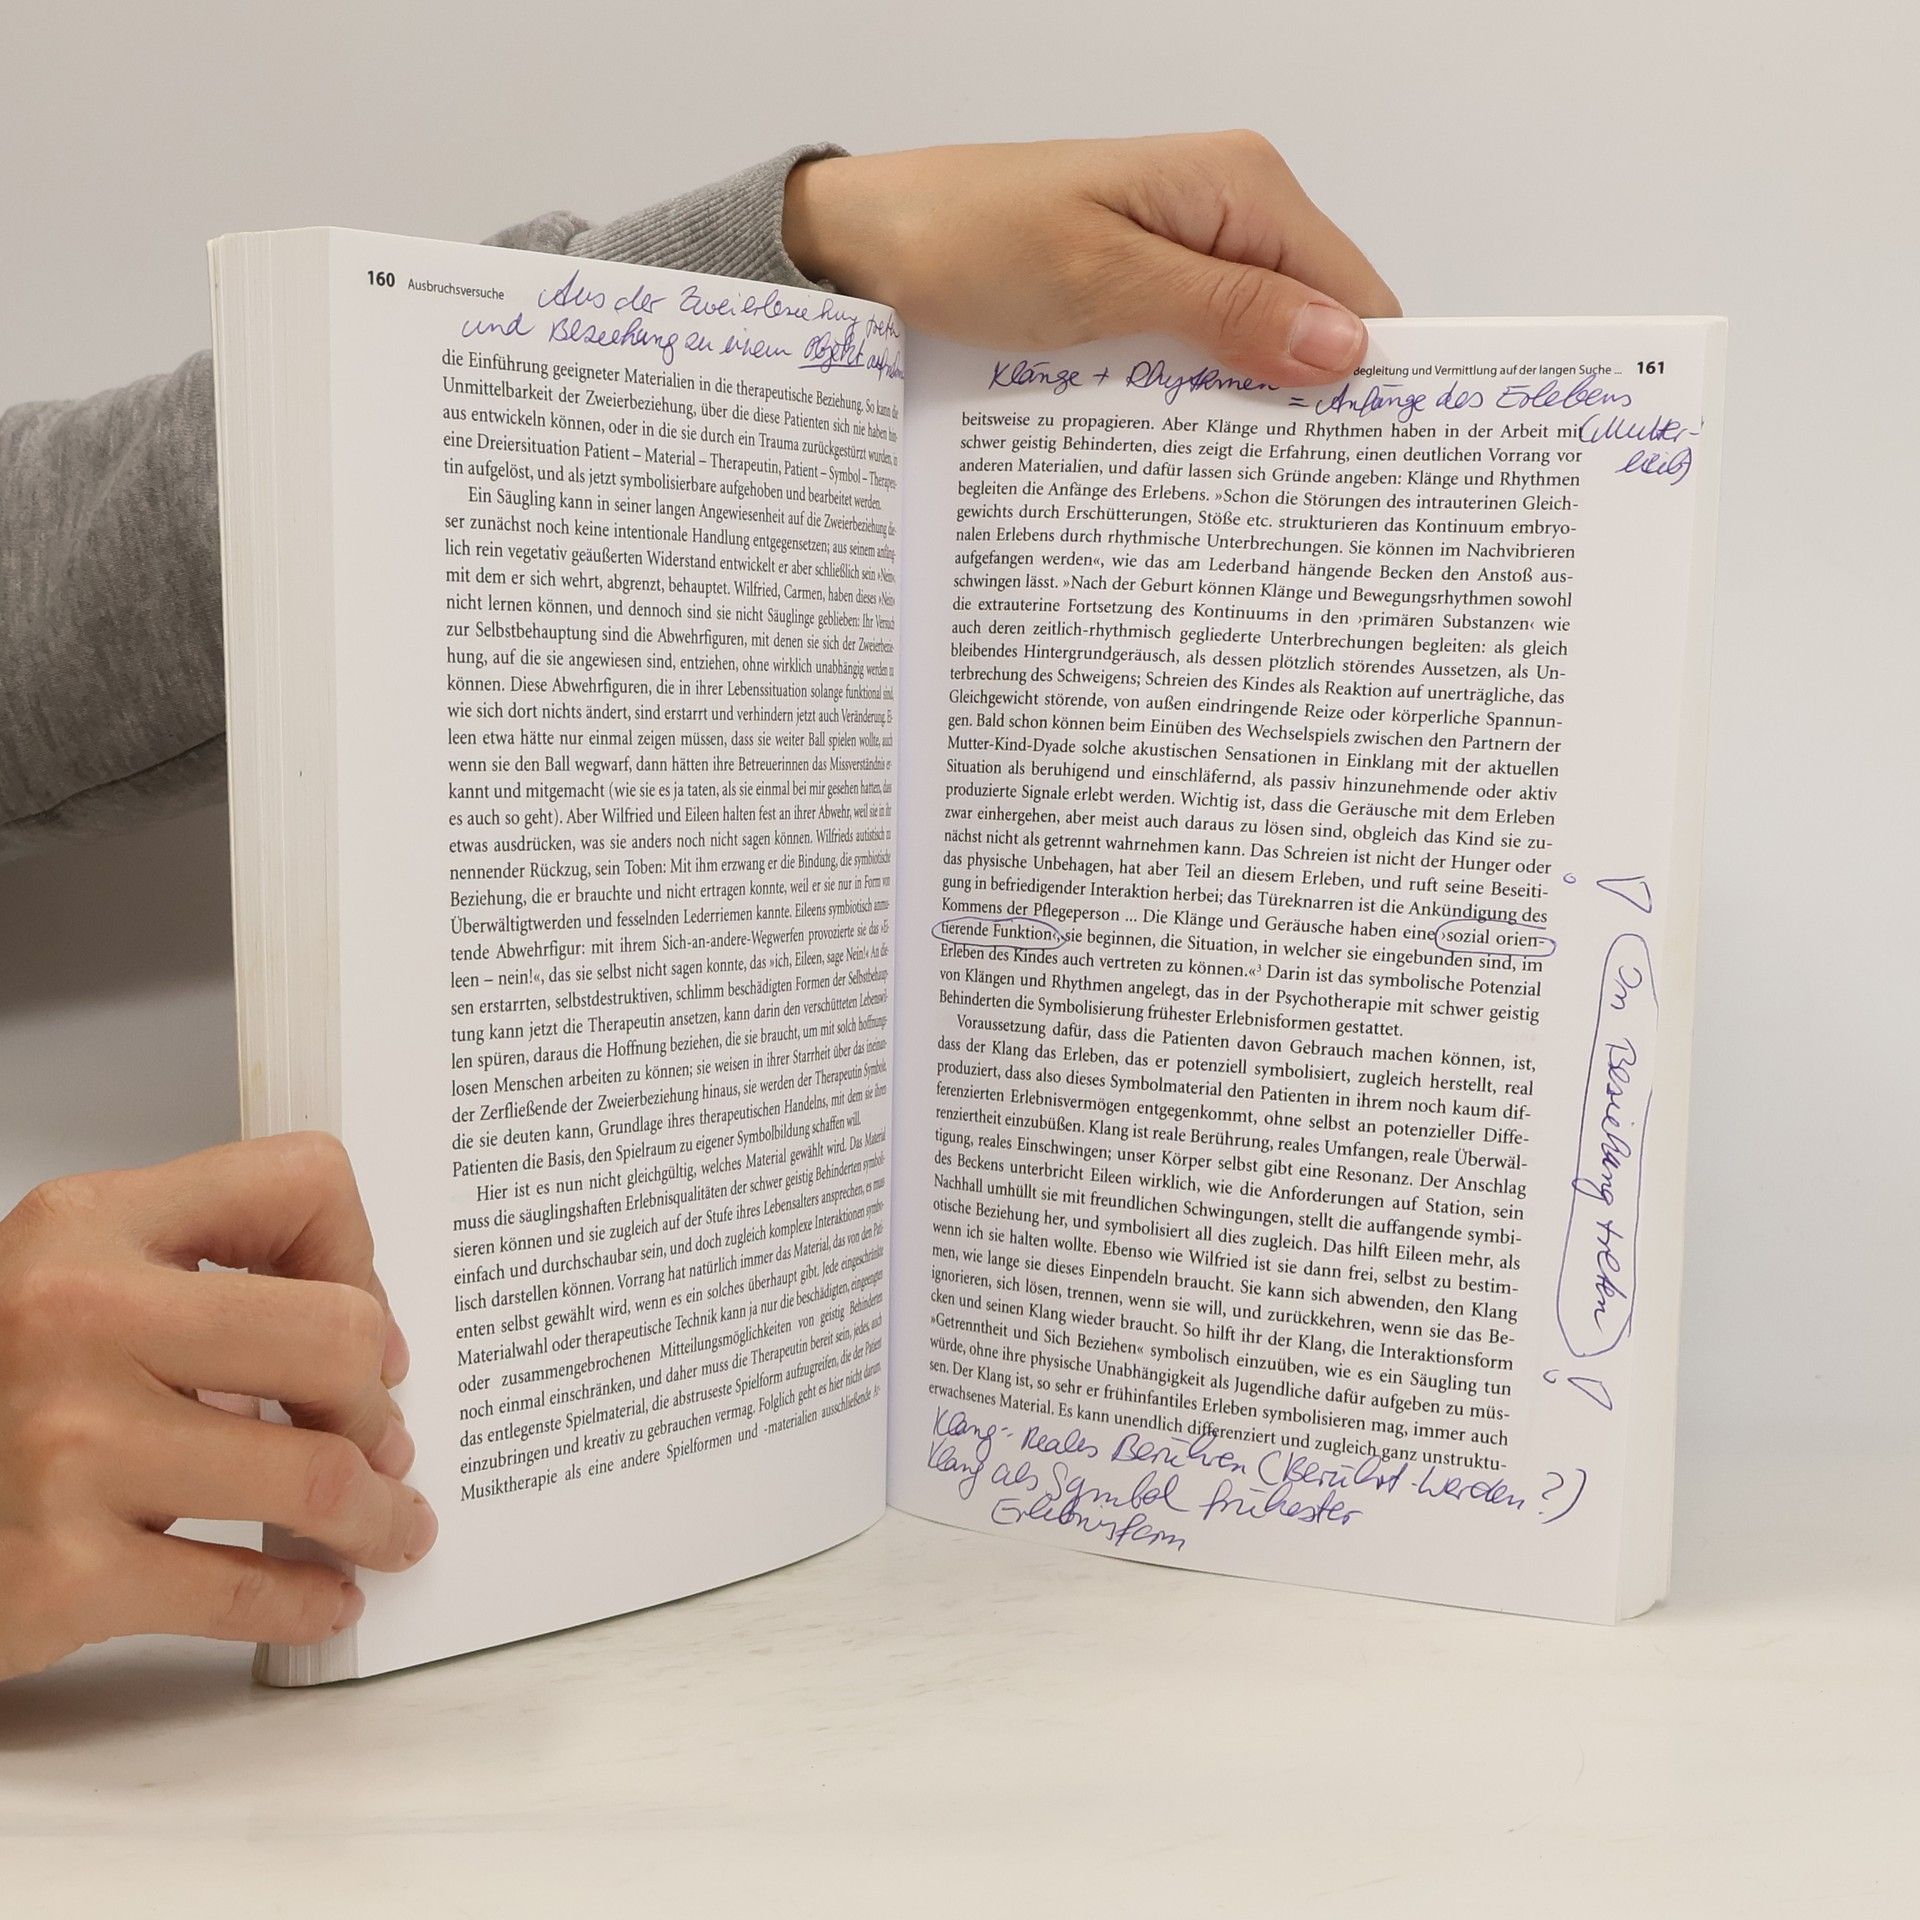 160 Ausbruchsversuche
Aus der Zweierbeziehung treten
und Beziehung zu einem Objekt
die Einführung geeigneter Materialien in die therapeutische Beziehung. So kann die
Unmittelbarkeit der Zweierbeziehung, über die diese Patienten sich nie haben hin-
aus entwickeln können, oder in die sie durch ein Trauma zurückgestürzt wurden, in
eine Dreiersituation Patient – Material – Therapeutin, Patient – Symbol – Therapeu-
tin aufgelöst, und als jetzt symbolisierbare aufgehoben und bearbeitet werden.
Ein Säugling kann in seiner langen Angewiesenheit auf die Zweierbeziehung die-
ser zunächst noch keine intentionale Handlung entgegensetzen; aus seinem anfäng-
lich rein vegetativ geäußerten Widerstand entwickelt er aber schließlich sein »Nein«,
mit dem er sich wehrt, abgrenzt, behauptet. Wilfried, Carmen, haben dieses »Nein«
nicht lernen können, und dennoch sind sie nicht Säuglinge geblieben: Ihr Versuch
zur Selbstbehauptung sind die Abwehrfiguren, mit denen sie sich der Zweierbezie-
hung, auf die sie angewiesen sind, entziehen, ohne wirklich unabhängig werden zu
können. Diese Abwehrfiguren, die in ihrer Lebenssituation solange funktional sind,
wie sich dort nichts ändert, sind erstarrt und verhindern jetzt auch Veränderung. Ei-
leen etwa hätte nur einmal zeigen müssen, dass sie weiter Ball spielen wollte, auch
wenn sie den Ball wegwarf, dann hätten ihre Betreuerinnen das Missverständnis er-
kannt und mitgemacht (wie sie es ja taten, als sie einmal bei mir gesehen hatten, das
es auch so geht). Aber Wilfried und Eileen halten fest an ihrer Abwehr, weil sie in ihr
etwas ausdrücken, was sie anders noch nicht sagen können. Wilfrieds autistisch zu
nennender Rückzug, sein Toben: Mit ihm erzwang er die Bindung, die symbiotische
Beziehung, die er brauchte und nicht ertragen konnte, weil er sie nur in Form von
Überwältigtwerden und fesselnden Lederriemen kannte. Eileens symbiotisch anmu-
tende Abwehrfigur: mit ihrem Sich-an-andere-Wegwerfen provozierte sie das »Ei-
leen – nein!«, das sie selbst nicht sagen konnte, das »ich, Eileen, sage Nein!« An die-
sen erstarrten, selbstdestruktiven, schlimm beschädigten Formen der Selbstbehaup-
tung kann jetzt die Therapeutin ansetzen, kann darin den verschütteten Lebenswil-
len spüren, daraus die Hoffnung beziehen, die sie braucht, um mit solch hoffnungs-
losen Menschen arbeiten zu können; sie weisen in ihrer Starrheit über das ineinan-
der Zerfließende der Zweierbeziehung hinaus, sie werden der Therapeutin Symbole,
die sie deuten kann, Grundlage ihres therapeutischen Handelns, mit dem sie ihren
Patienten die Basis, den Spielraum zu eigener Symbolbildung schaffen will.
Hier ist es nun nicht gleichgültig, welches Material gewählt wird. Das Material
muss die säuglingshaften Erlebnisqualitäten der schwer geistig Behinderten symboli-
sieren können und sie zugleich auf der Stufe ihres Lebensalters ansprechen, es muss
einfach und durchschaubar sein, und doch zugleich komplexe Interaktionen symbo-
lisch darstellen können. Vorrang hat natürlich immer das Material, das von den Pati-
enten selbst gewählt wird, wenn es ein solches überhaupt gibt. Jede eingeschränkte
Materialwahl oder therapeutische Technik kann ja nur die beschädigten, eingeengten
oder zusammengebrochenen Mitteilungsmöglichkeiten von geistig Behinderten
noch einmal einschränken, und daher muss die Therapeutin bereit sein, jedes, auch
das entlegenste Spielmaterial, die abstruseste Spielform aufzugreifen, die der Patient
einzubringen und kreativ zu gebrauchen vermag. Folglich geht es hier nicht darum,
Musiktherapie als eine andere Spielformen und -materialien ausschließende Ar-
Begleitung und Vermittlung auf der langen Suche ... 161
Klänge + Rhythmen = Anfänge des Erlebens
(Mutter-
leib)
beitsweise zu propagieren. Aber Klänge und Rhythmen haben in der Arbeit mit
schwer geistig Behinderten, dies zeigt die Erfahrung, einen deutlichen Vorrang vor
anderen Materialien, und dafür lassen sich Gründe angeben: Klänge und Rhythmen
begleiten die Anfänge des Erlebens. »Schon die Störungen des intrauterinen Gleich-
gewichts durch Erschütterungen, Stöße etc. strukturieren das Kontinuum embryo-
nalen Erlebens durch rhythmische Unterbrechungen. Sie können im Nachvibrieren
aufgefangen werden«, wie das am Lederband hängende Becken den Anstoß aus-
schwingen lässt. »Nach der Geburt können Klänge und Bewegungsrhythmen sowohl
die extrauterine Fortsetzung des Kontinuums in den ›primären Substanzen‹ wie
auch deren zeitlich-rhythmisch gegliederte Unterbrechungen begleiten: als gleich
bleibendes Hintergrundgeräusch, als dessen plötzlich störendes Aussetzen, als Un-
terbrechung des Schweigens; Schreien des Kindes als Reaktion auf unerträgliche, das
Gleichgewicht störende, von außen eindringende Reize oder körperliche Spannun-
gen. Bald schon können beim Einüben des Wechselspiels zwischen den Partnern der
Mutter-Kind-Dyade solche akustischen Sensationen in Einklang mit der aktuellen
Situation als beruhigend und einschläfernd, als passiv hinzunehmende oder aktiv
produzierte Signale erlebt werden. Wichtig ist, dass die Geräusche mit dem Erleben
zwar einhergehen, aber meist auch daraus zu lösen sind, obgleich das Kind sie zu-
nächst nicht als getrennt wahrnehmen kann. Das Schreien ist nicht der Hunger oder
das physische Unbehagen, hat aber Teil an diesem Erleben, und ruft seine Beseiti-
gung in befriedigender Interaktion herbei; das Türeknarren ist die Ankündigung des
Kommens der Pflegeperson ... Die Klänge und Geräusche haben eine ›sozial orien-
tierende Funktion‹, sie beginnen, die Situation, in welcher sie eingebunden sind, im
Erleben des Kindes auch vertreten zu können.«³ Darin ist das symbolische Potenzial
von Klängen und Rhythmen angelegt, das in der Psychotherapie mit schwer geistig
Behinderten die Symbolisierung frühester Erlebnisformen gestattet.
Voraussetzung dafür, dass die Patienten davon Gebrauch machen können, ist,
dass der Klang das Erleben, das er potenziell symbolisiert, zugleich herstellt, real
produziert, dass also dieses Symbolmaterial den Patienten in ihrem noch kaum dif-
ferenzierten Erlebnisvermögen entgegenkommt, ohne selbst an potenzieller Diffe-
renziertheit einzubüßen. Klang ist reale Berührung, reales Umfangen, reale Überwäl-
tigung, reales Einschwingen; unser Körper selbst gibt eine Resonanz. Der Anschlag
des Beckens unterbricht Eileen wirklich, wie die Anforderungen auf Station, sein
Nachhall umhüllt sie mit freundlichen Schwingungen, stellt die auffangende symbi-
otische Beziehung her, und symbolisiert all dies zugleich. Das hilft Eileen mehr, als
wenn ich sie halten wollte. Ebenso wie Wilfried ist sie dann frei, selbst zu bestim-
men, wie lange sie dieses Einpendeln braucht. Sie kann sich abwenden, den Klang
ignorieren, sich lösen, trennen, wenn sie will, und zurückkehren, wenn sie das Be-
cken und seinen Klang wieder braucht. So hilft ihr der Klang, die Interaktionsform
»Getrenntheit und Sich Beziehen« symbolisch einzuüben, wie es ein Säugling tun
würde, ohne ihre physische Unabhängigkeit als Jugendliche dafür aufgeben zu müs-
sen. Der Klang ist, so sehr er frühinfantiles Erleben symbolisieren mag, immer auch
erwachsenes Material. Es kann unendlich differenziert und zugleich ganz unstruktu-
In Beziehung treten
Klang - Reales Berühren (Berührt-werden ?)
Klang als Symbol frühester
Erlebnisform